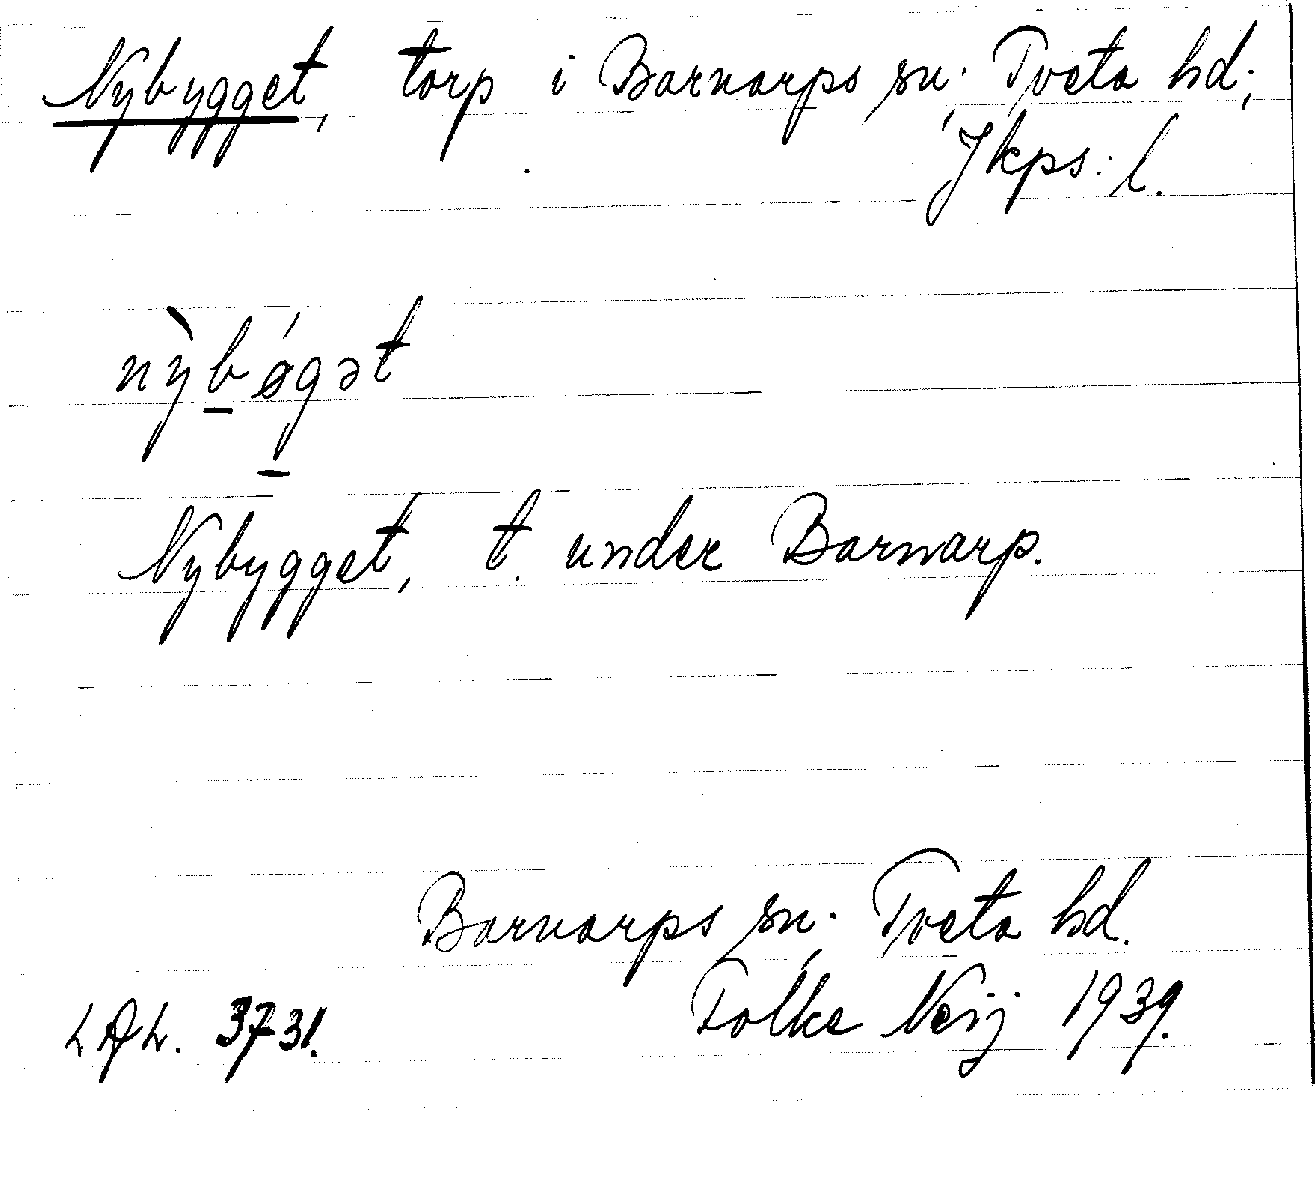 Nybygget, torp i Barnarps sn; Tveta hd;
Jkps. l.
nỳbǿgət
Nybygget, t. under Barnarp.
Barnarps sn; Tveta hd.
Folke Neij 1939.
3731.